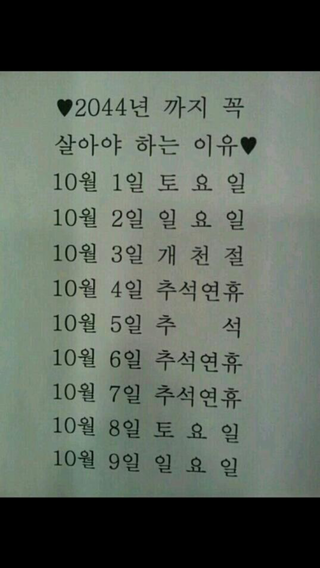 ♥2044년 까지 꼭
살아야 하는 이유♥
10월 1일 토 요 일
10월 2일 일 요 일
10월 3일 개 천 절
10월 4일 추석연휴
10월 5일 추 석
10월 6일 추석연휴
10월 7일 추석연휴
10월 8일 토 요 일
10월 9일 일 요 일